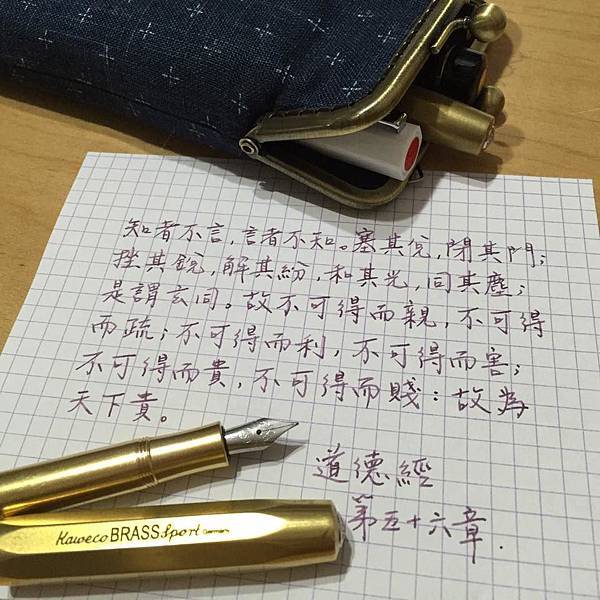 知者不言，言者不知。塞其兌，閉其門；
挫其銳，解其紛，和其光，同其塵；
是謂玄同。故不可得而親，不可得
而疏；不可得而利，不可得而害；
不可得而貴，不可得而賤：故為
天下貴。
道德經
第五十六章.
Kaweco BRASS Sport Germany